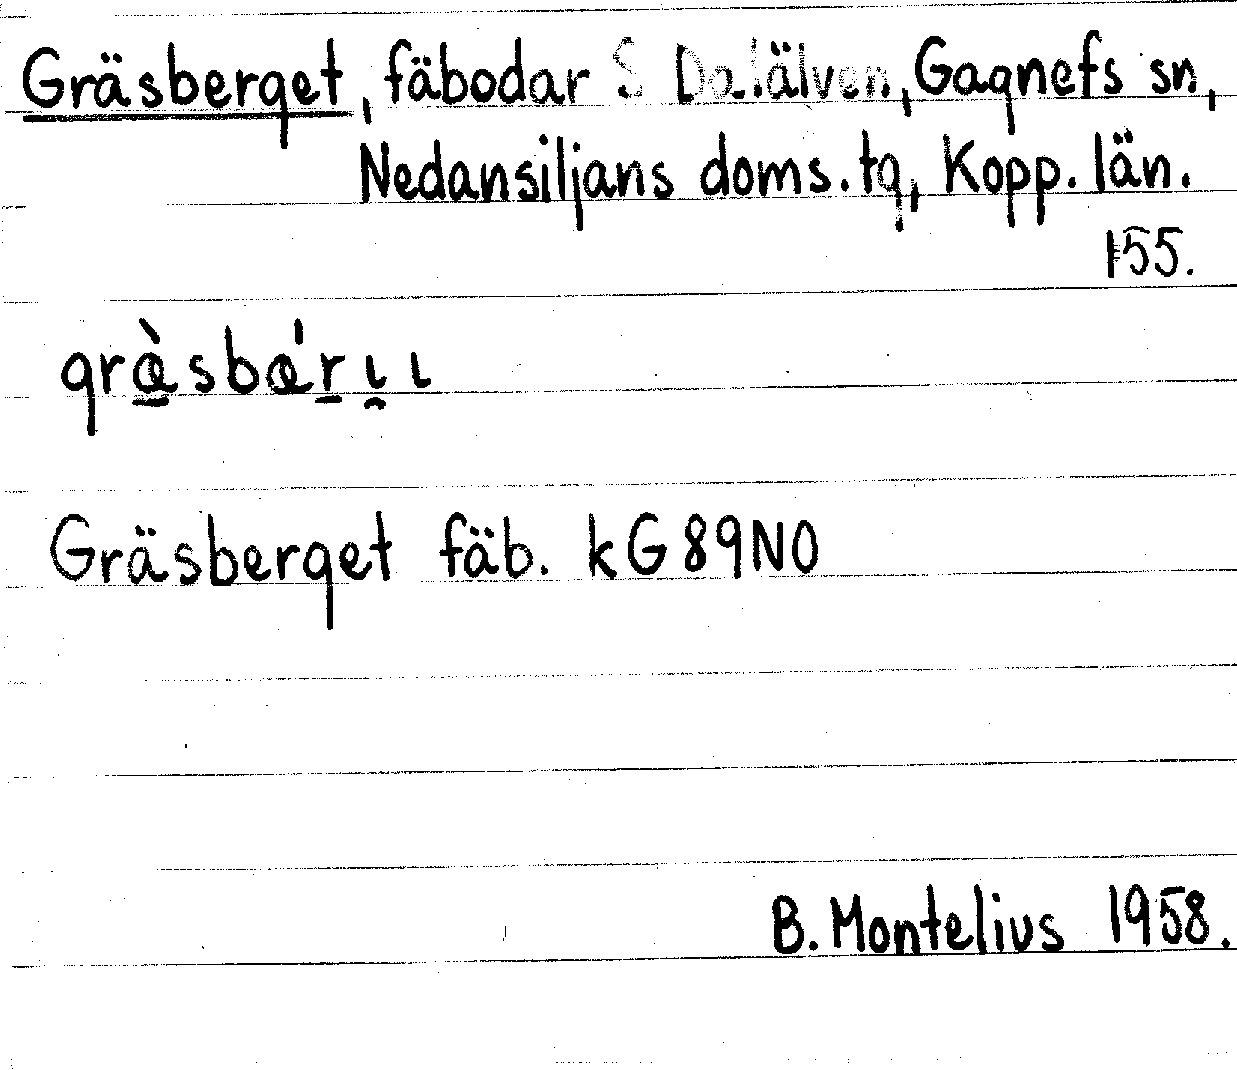 Gräsberget, fäbodar S Dalälven, Gagnefs sn,
Nedansiljans doms. tg, Kopp. län.
155.
Gräsberget fäb. kG89NO
B. Montelius 1958.